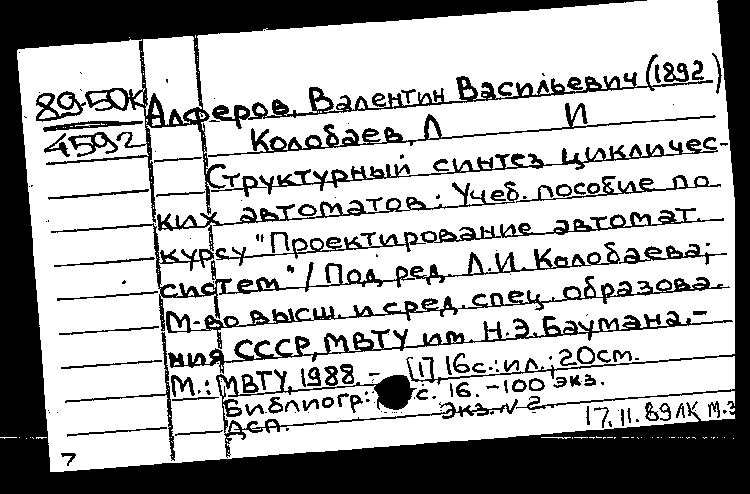 89-50К
4592
Алферов, Валентин Васильевич (1892)
Колобаев, Л И
Структурный синтез цикличес-
ких автоматов: Учеб. пособие по
курсу "Проектирование автомат.
систем" / Под ред. Л.И. Колобаева;
М-во высш. и сред. спец. образова.
ния СССР, МВТУ им. Н.Э. Баумана.-
М.: МВТУ, 1988. - [1], 16с.: ил.; 20см.
Библиогр: с. 16. -100 экз.
ДСП. Экз. N 2.
17.11.89 ЛК М.З
7